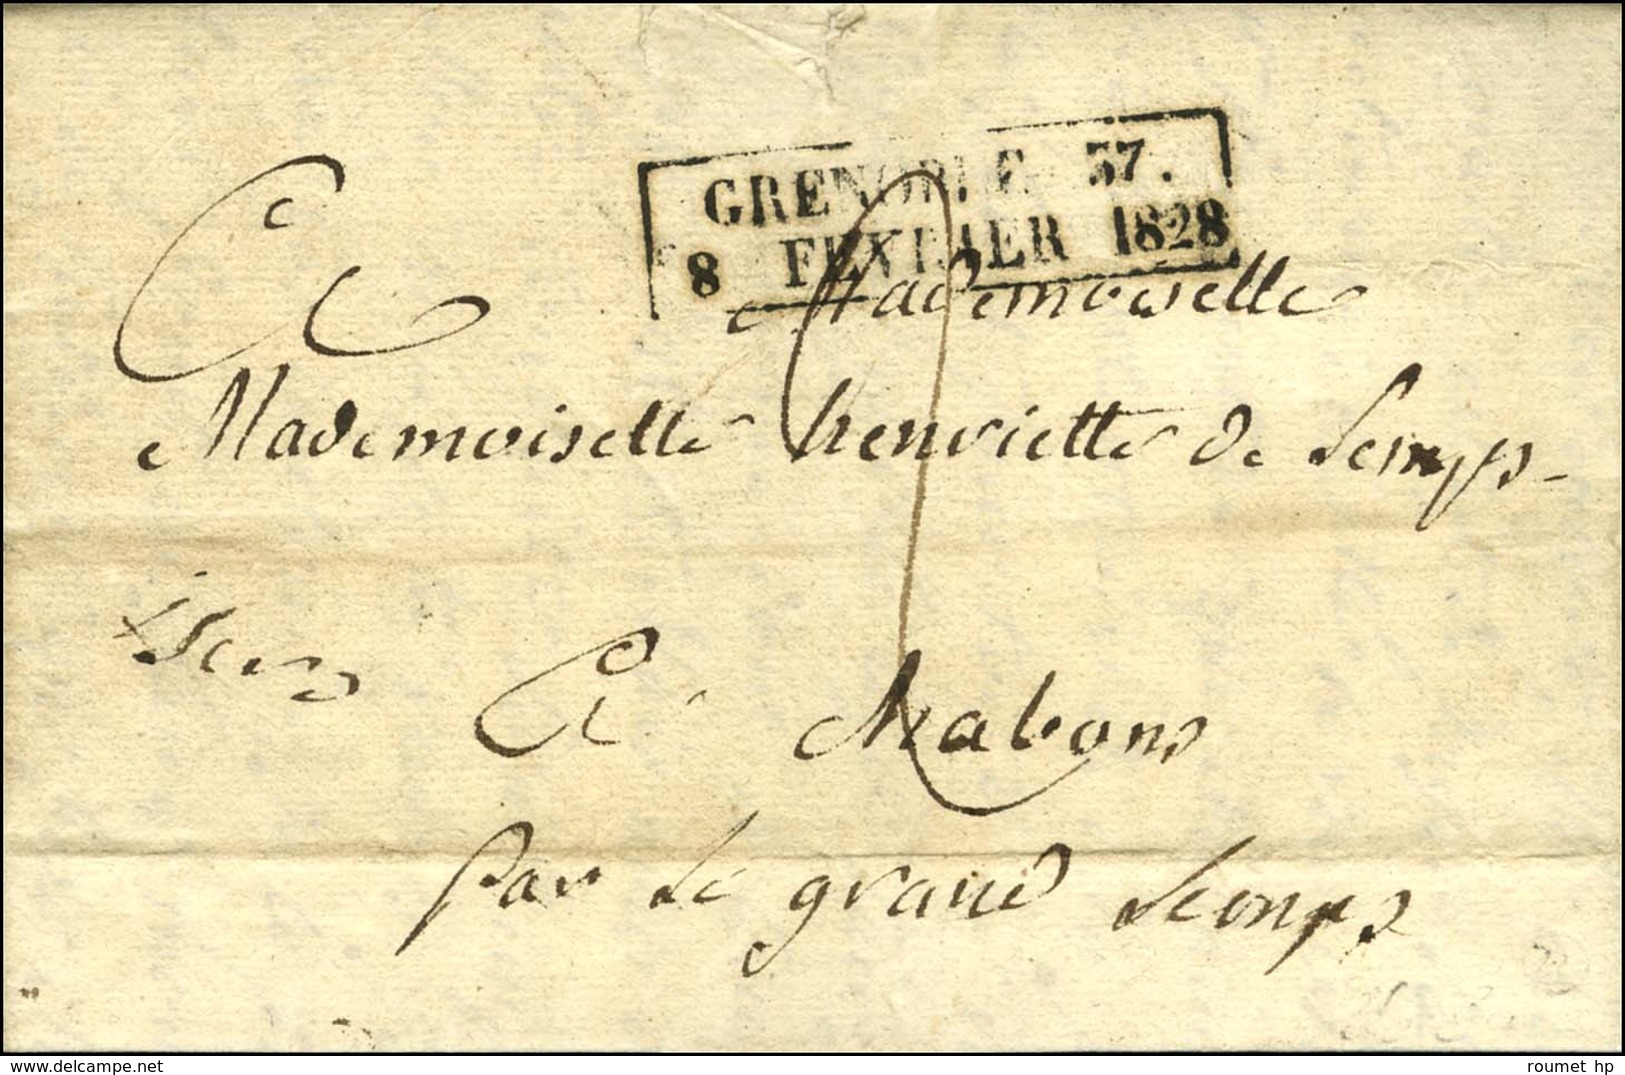 GRENOBLE 37.
8 FEVRIER 1828
A Mademoiselle
Mademoiselle henriette de Lemps
isere
A Nabons
par Le grand Lemps
delcampe.net
roumet hp